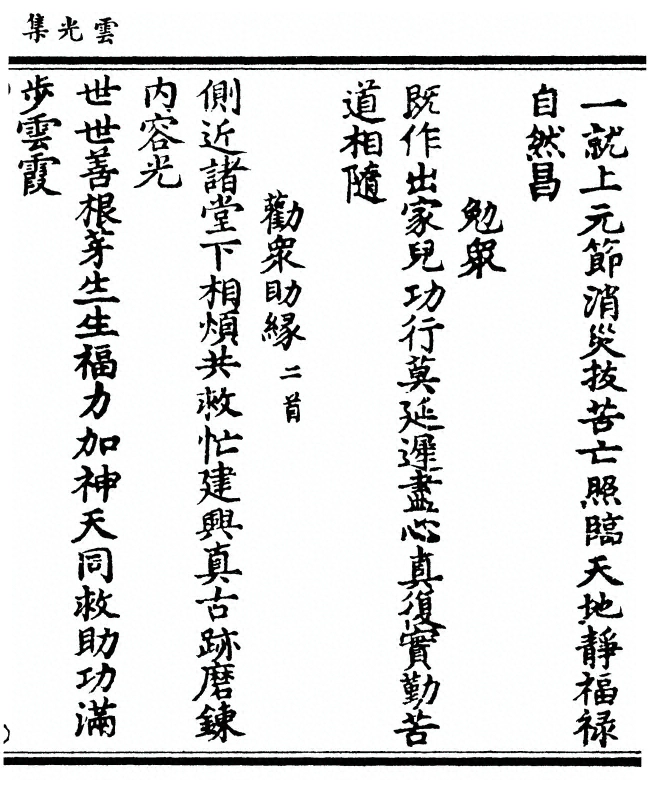 雲光集
一就上元節消災拔苦亡照臨天地靜福禄
自然昌
勉衆
既作出家兒功行莫延遲盡心真復實勤苦
道相隨
勸衆助緣二首
側近諸堂下相煩共救忙建興真古跡磨鍊
内容光
世世善根芽生生福力加神天同救助功滿
步雲霞